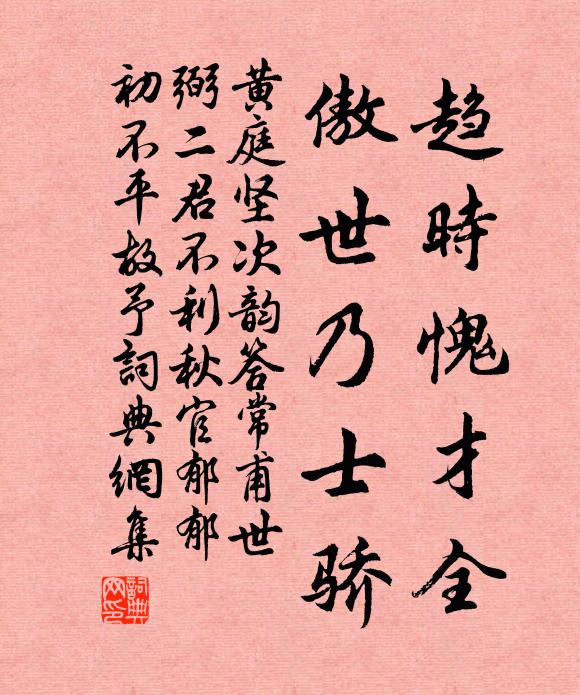 趋時愧才全
傲世乃士骄
黄庭坚次韵答常甫世
弼二君不利秋官郁郁
初不平故予詞典網集
詞典
网印